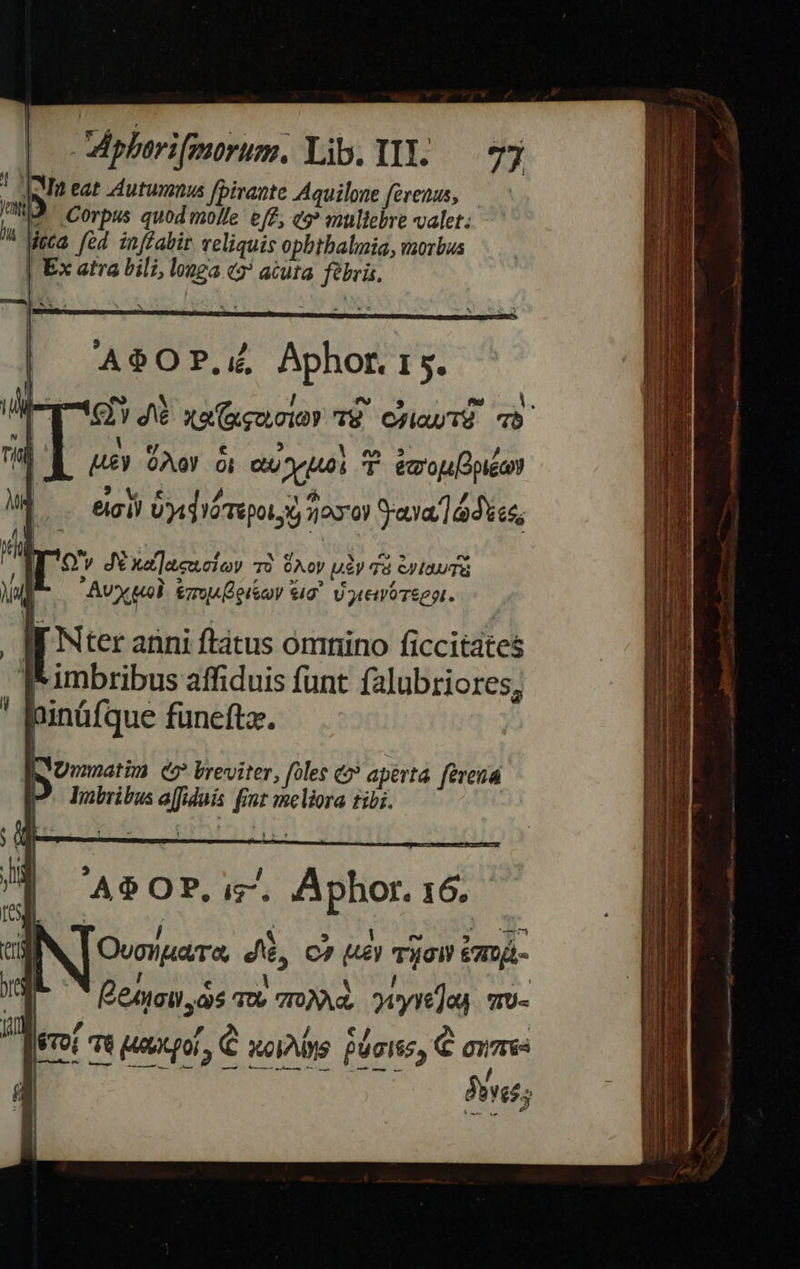 Aphoriſmorum. Lib. III. 77
In eat Autumnus ſpirante Aquilone ſerenus,
Corpus quod molle eſt, & muliebre valet:
ſicca ſed inſtabit reliquis ophthalmia, morbus
Ex atra bili, longa & acuta febris.
ἈΦΟΡ. ιέ. Aphor. 15.
ΤΩν δὲ καταστασίων τῦ ἐνιαυτῦ τὸ
μὲν ὅλον ὁι αὐχμοὶ τ ἐπομβριέων
εἰσὶν ὑγιεινότεροι, ϗ ἧσσον θανατώδεες.
Τῶν δὲ καταστασίων τὸ ὅλον μὲν τῦ ἐνιαυτῦ
Αυχμοὶ ἐπομβριέων εἰσ' ὑγιεινότεροι.
INter anni ſtatus omnino ſiccitates
imbribus aſſiduis ſunt ſalubriores,
minúſque funeſtæ.
SUmmatim & breviter, ſoles & aperta ſerena
Imbribus aſſiduis ſint meliora tibi.
ἈΦΟΡ. ιϛʹ. Aphor. 16.
ΝΟυσήματα δὲ, ἐν μὲν τῇσιν ἐπομ-
βρίῃσιν, ὡς τὰ πολλὰ γίγνεται πυ-
ρετοί τε μακροί, & κοιλίης ῥύσιες, & σηπε-
δόνες,